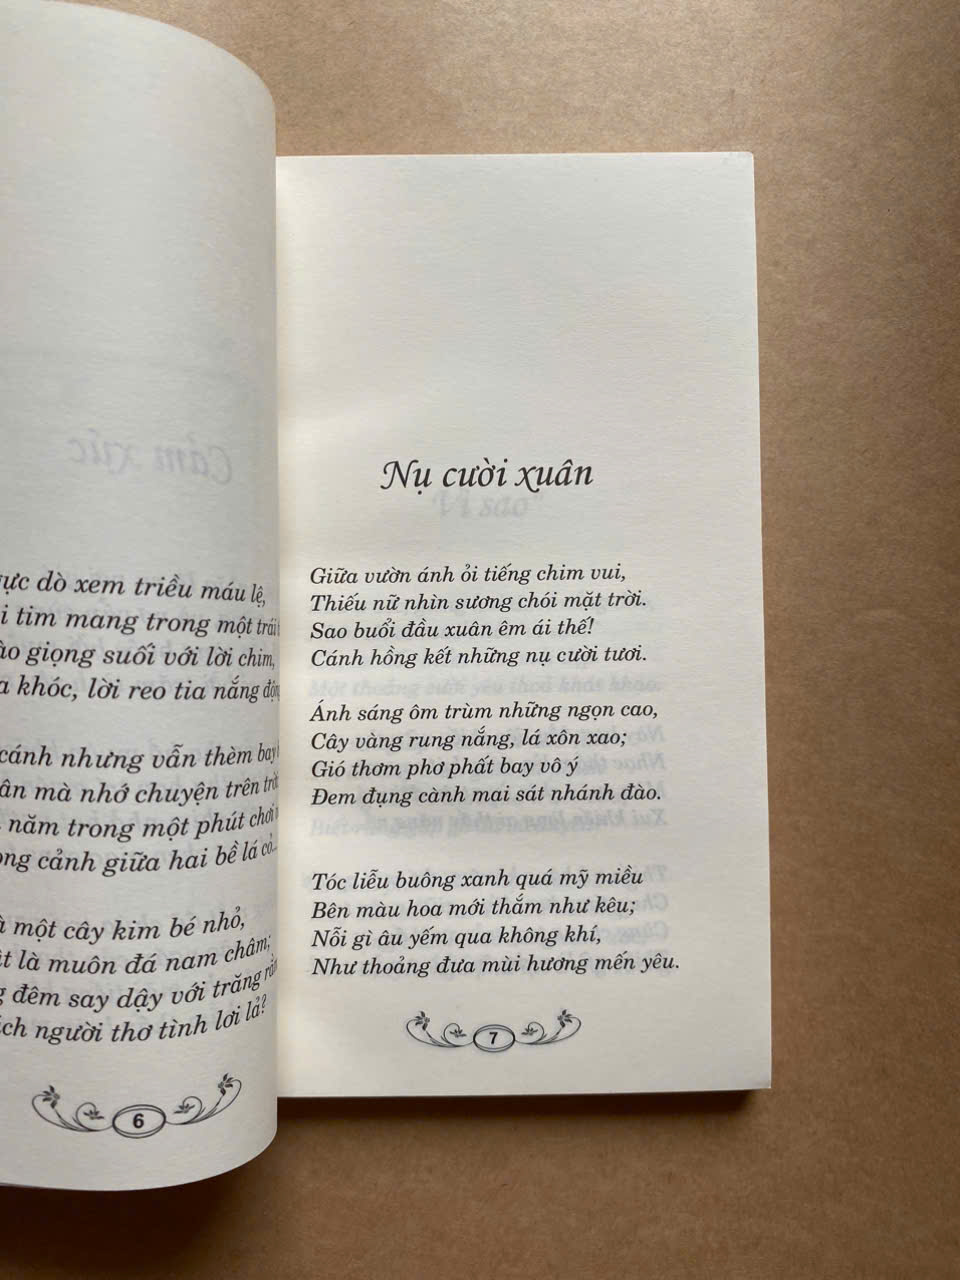 dò xem triều máu lệ,
tim mang trong một trái
giọng suối với lời chim,
khóc, lời reo tia nắng động
cánh nhưng vẫn thèm bay
mà nhớ chuyện trên trời
năm trong một phút chơi
cảnh giữa hai bề lá cỏ...
một cây kim bé nhỏ,
là muôn đá nam châm;
đêm say dậy với trăng rằm
người thơ tình lơi lả?
6
Nụ cười xuân
Giữa vườn ánh ỏi tiếng chim vui,
Thiếu nữ nhìn sương chói mặt trời.
Sao buổi đầu xuân êm ái thế!
Cánh hồng kết những nụ cười tươi.
Ánh sáng ôm trùm những ngọn cao,
Cây vàng rung nắng, lá xôn xao;
Gió thơm phơ phất bay vô ý
Đem đụng cành mai sát nhánh đào.
Tóc liễu buông xanh quá mỹ miều
Bên màu hoa mới thắm như kêu;
Nỗi gì âu yếm qua không khí,
Như thoảng đưa mùi hương mến yêu.
7